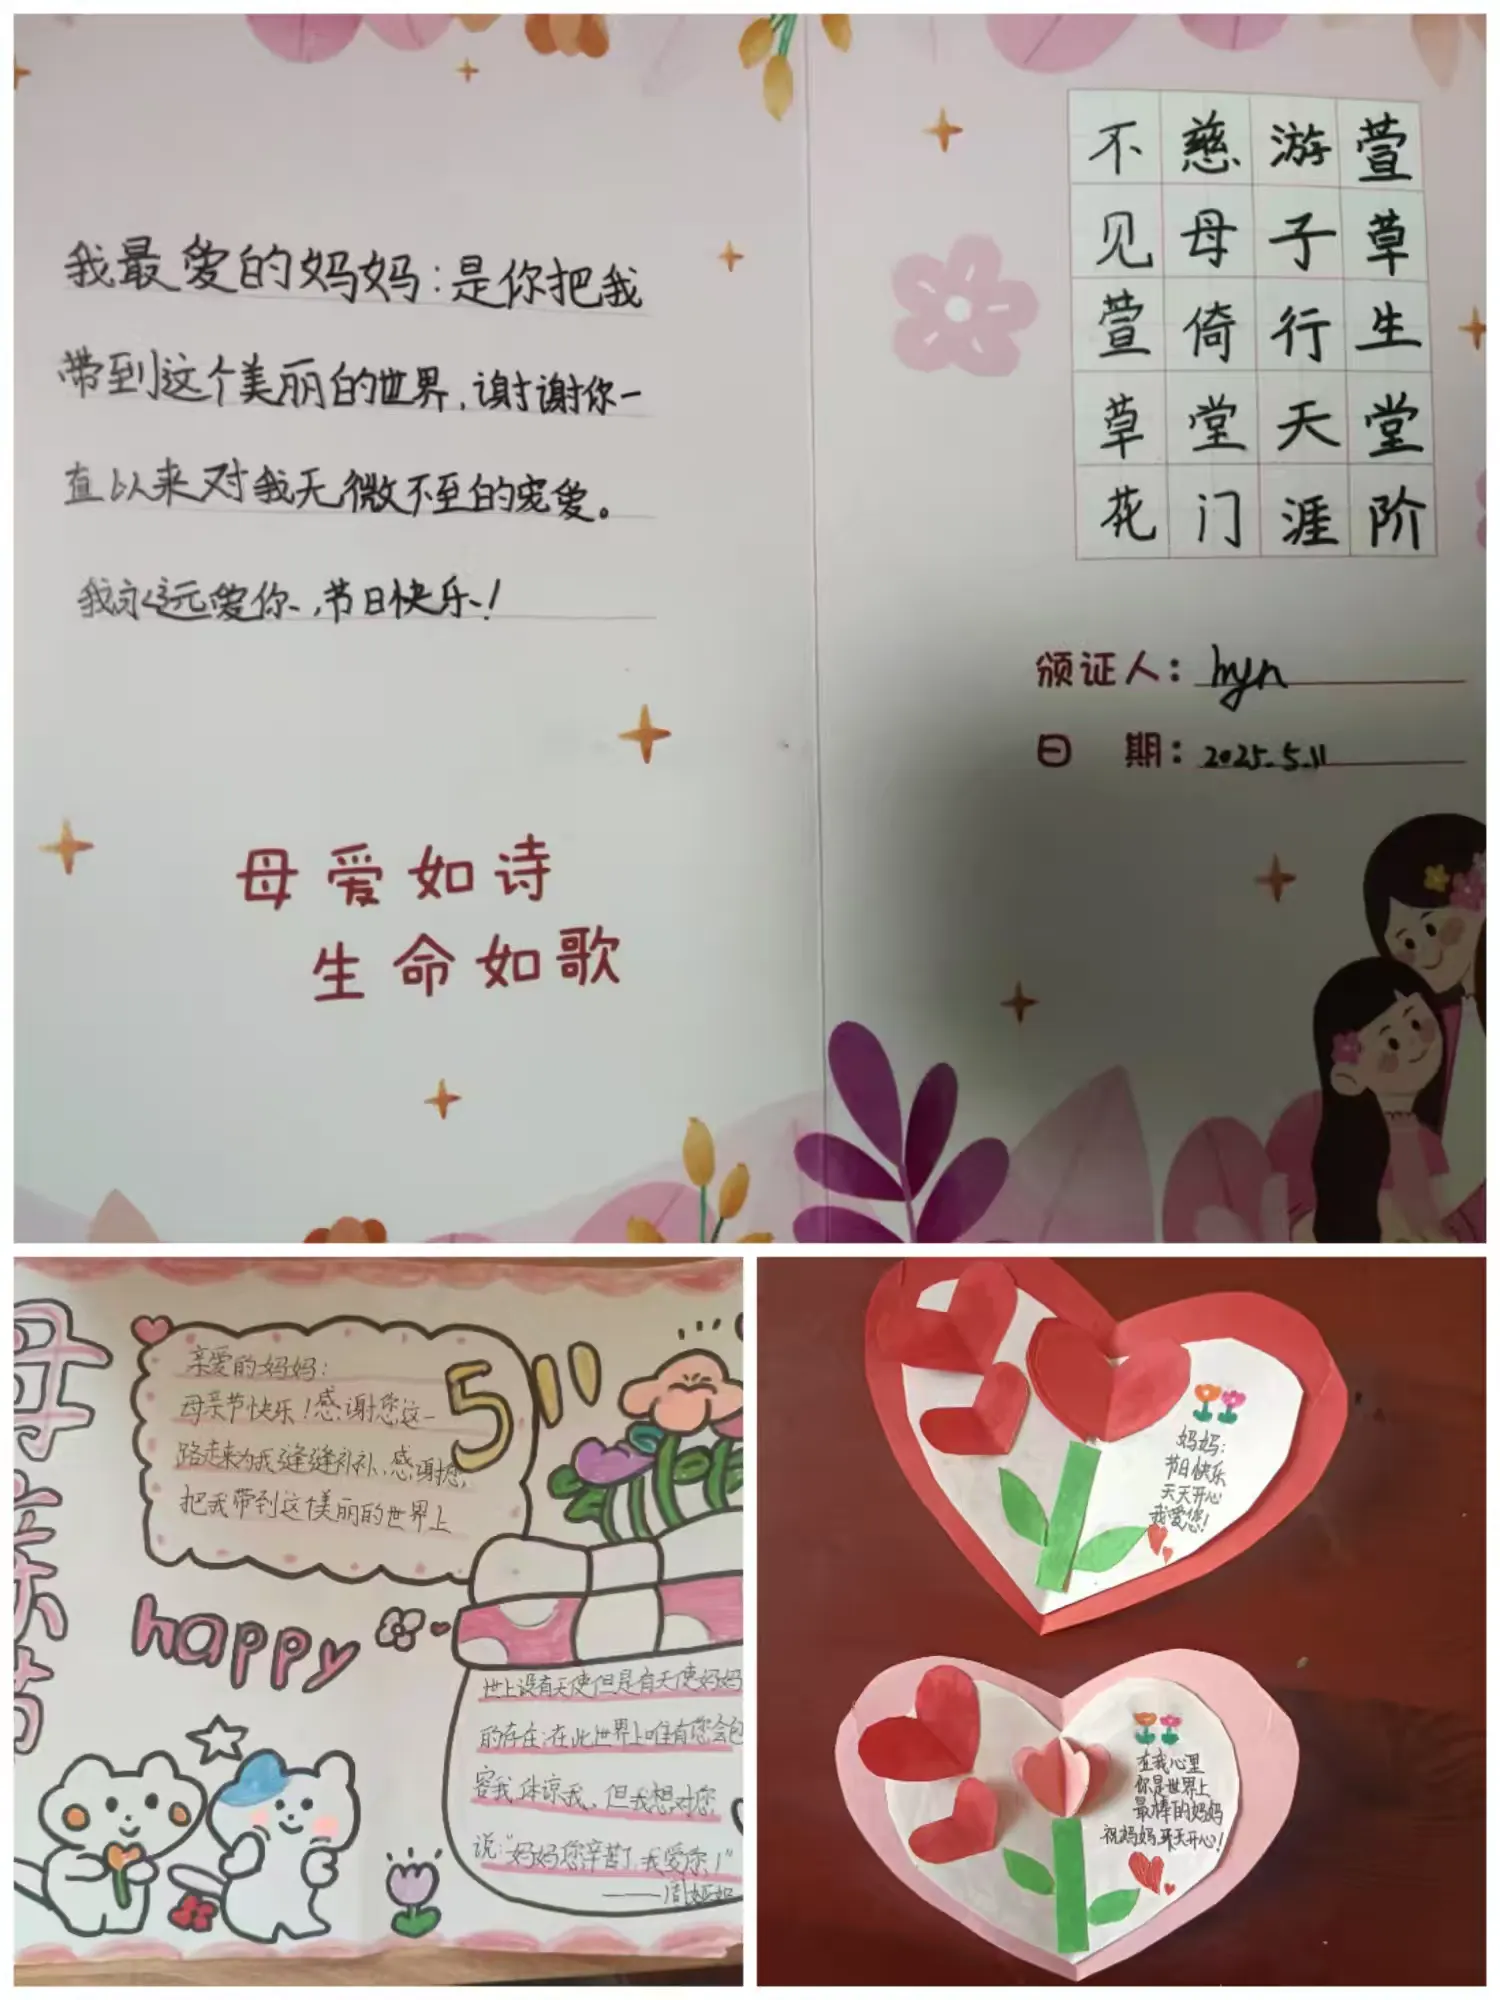 我最爱的妈妈：是你把我
带到这个美丽的世界，谢谢你一
直以来对我无微不至的宠爱。
我永远爱你、，节日快乐！
母爱如诗
生命如歌
萱草生堂阶
游子行天涯
慈母倚堂门
不见萱草花
颁证人：hyn
日 期：2025.5.11
母亲节
亲爱的妈妈：
母亲节快乐！感谢您这一
路走来为我缝缝补补、感谢您，
把我带到这个美丽的世界上
5
happy
世上没有天使但是有天使妈妈
的存在；在此世界上唯有您会包
容我、体谅我、但我想对您
说：“妈妈您辛苦了，我爱您！”
妈妈：
节日快乐
天天开心
我爱您！
在我心里
你是世界上
最棒的妈妈
祝妈妈，天天开心！